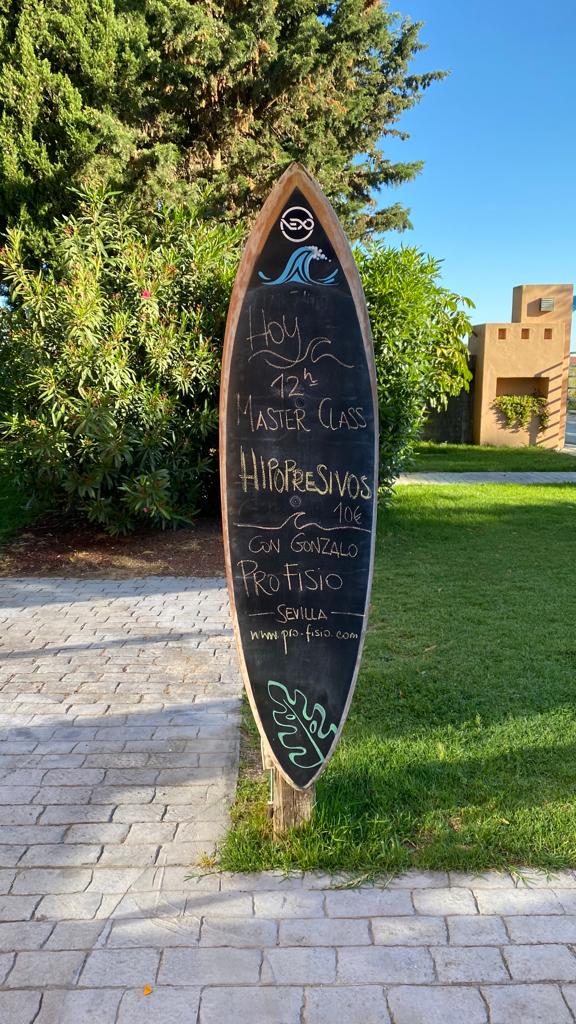 NEXO
HOY
12h
MASTER CLASS
HIPOPRESIVOS
10€
CON GONZALO
PRO FISIO
SEVILLA
www.pro-fisio.com